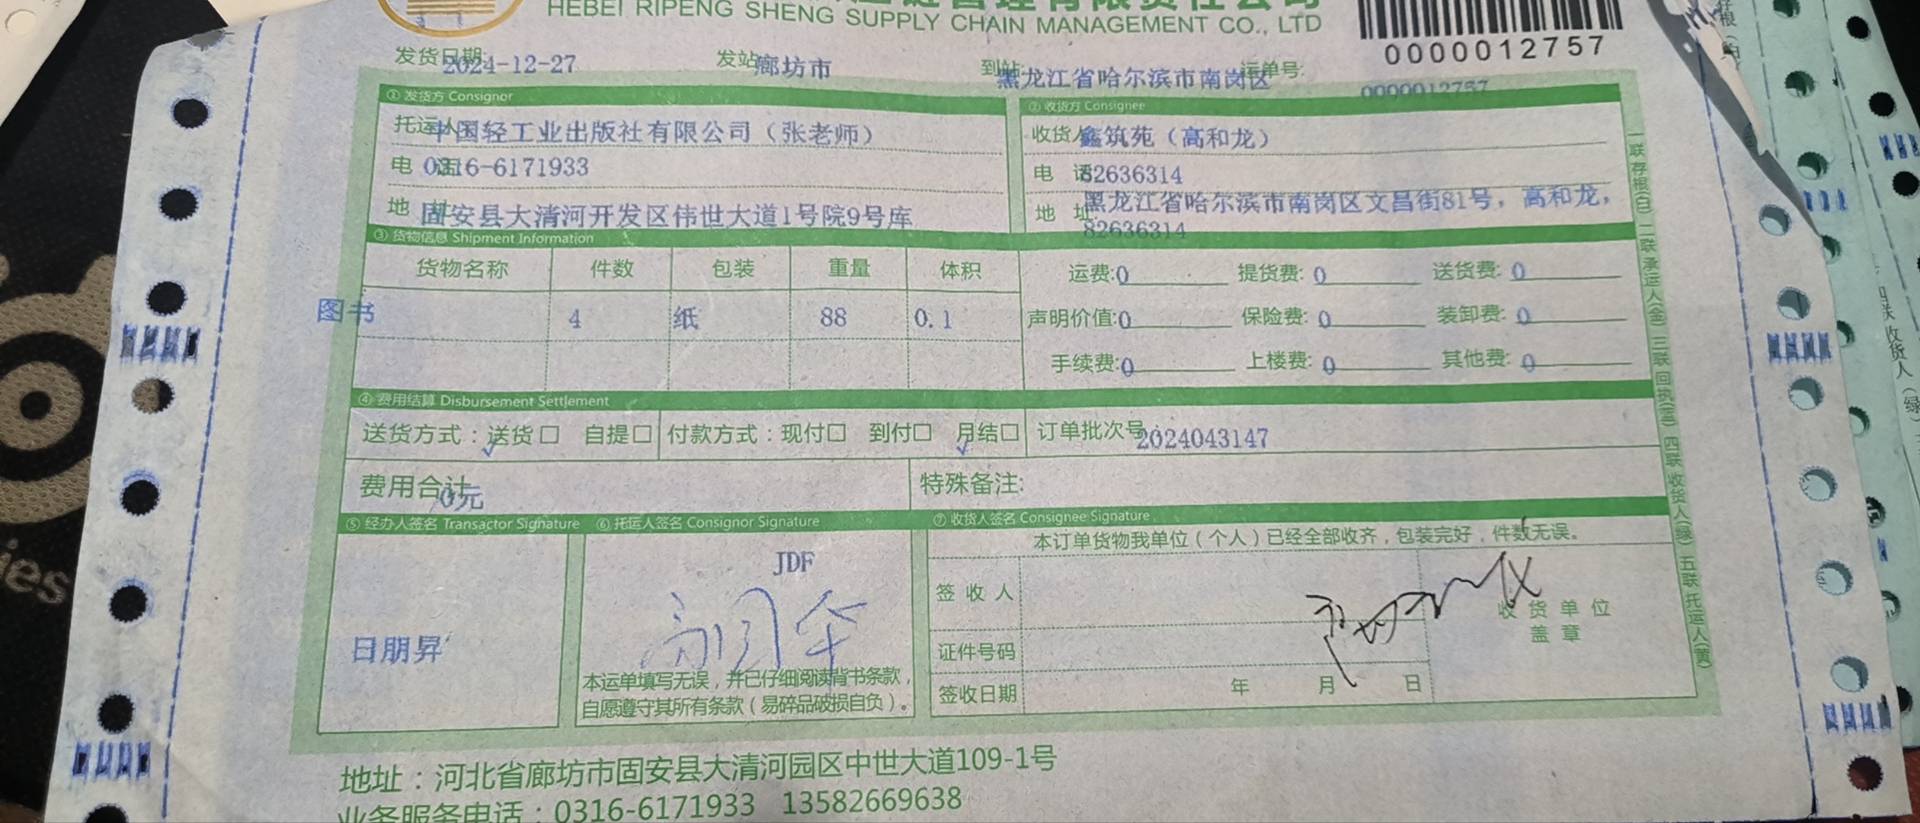 HEBEI RIPENG SHENG SUPPLY CHAIN MANAGEMENT CO., LTD
0000012757
发货日期: 2024-12-27 发站 廊坊市 到站: 黑龙江省哈尔滨市南岗区 运单号: 0000012757
① 发货方 Consignor ② 收货方 Consignee
托运人 中国轻工业出版社有限公司（张老师） 收货人 鑫筑苑（高和龙）
电 话 0316-6171933 电 话 82636314
地 址 固安县大清河开发区伟世大道1号院9号库 地 址 黑龙江省哈尔滨市南岗区文昌街81号，高和龙，
82636314
③ 货物信息 Shipment Information
货物名称 件数 包装 重量 体积 运费:0 提货费: 0 送货费: 0
图书 4 纸 88 0.1 声明价值:0 保险费: 0 装卸费: 0
手续费:0 上楼费: 0 其他费: 0
④ 费用结算 Disbursement Settlement
送货方式：送货□ 自提□ 付款方式：现付□ 到付□ 月结□ 订单批次号 2024043147
✓ ✓
费用合计 0元 特殊备注:
⑤ 经办人签名 Transactor Signature ⑥ 托运人签名 Consignor Signature ⑦ 收货人签名 Consignee Signature
本订单货物我单位（个人）已经全部收齐，包装完好，件数无误。
JDF
签 收 人
收 货 单 位
盖 章
日朋昇
证件号码
本运单填写无误，并已仔细阅读背书条款，
自愿遵守其所有条款（易碎品破损自负）。
签收日期 年 月 日
地址：河北省廊坊市固安县大清河园区中世大道109-1号
业务服务电话：0316-6171933 13582669638
一联 存根(白) 二联 承运人(金) 三联 回执(蓝) 四联 收货人(绿) 五联 托运人(黄)
四联 收货人（绿